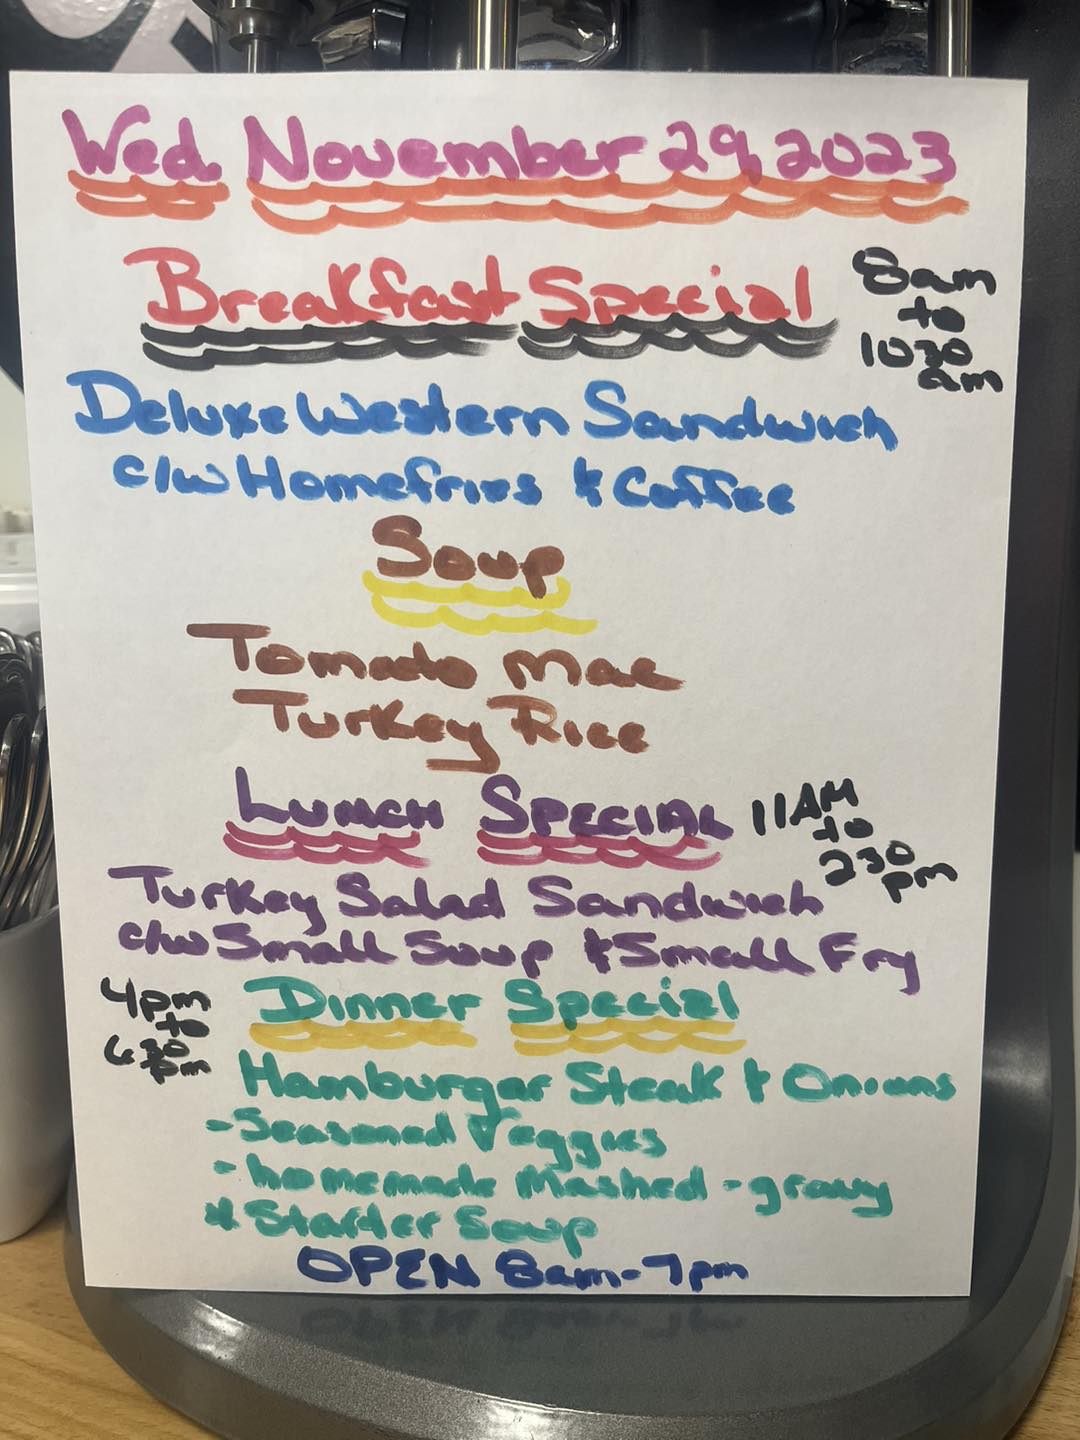 Wed. November 29, 2023
Breakfast Special
8am
to
1030
am
Deluxe Western Sandwich
c/w Homefries & Coffee
Soup
Tomato Mac
Turkey Rice
LUNCH SPECIAL
11AM
to
230
pm
Turkey Salad Sandwich
c/w Small Soup & Small Fry
4pm
to
630
pm
Dinner Special
Hamburger Steak & Onions
- Seasoned Veggies
- homemade Mashed - gravy
* Starter Soup
OPEN 8am-7pm